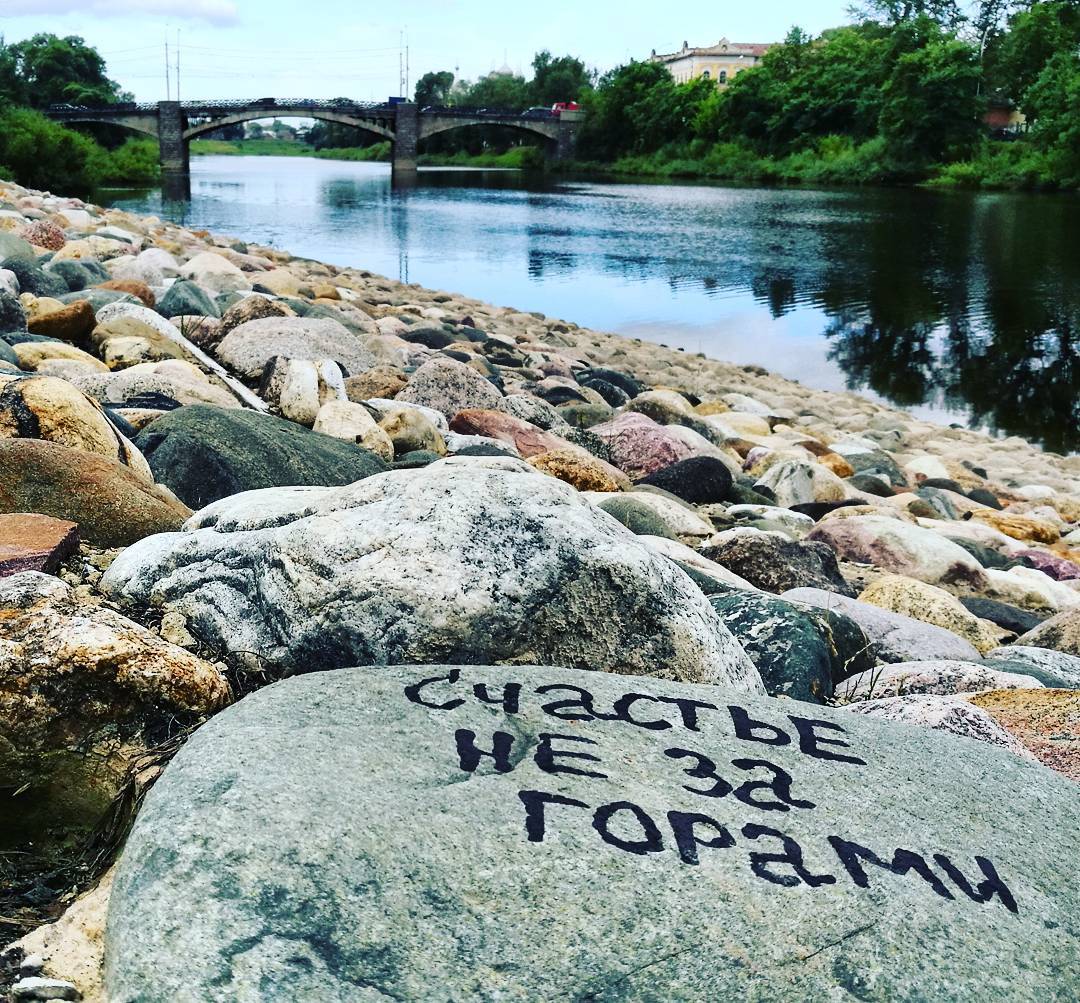 Счастье
не за
горами